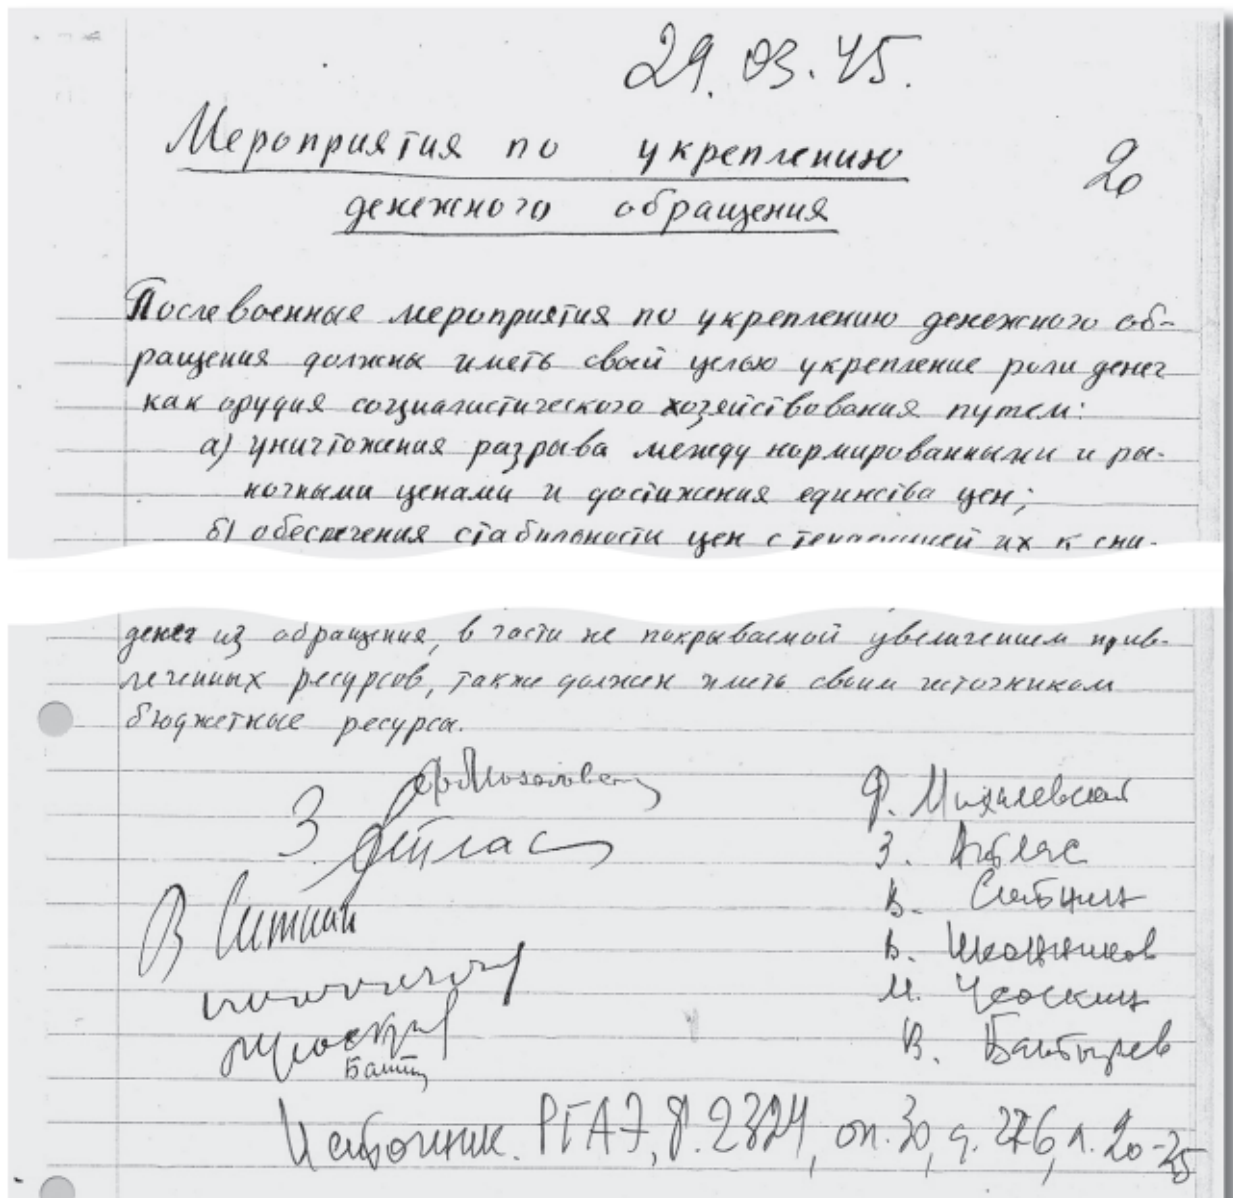 29.03.45.
Мероприятия по укреплению
20
денежного обращения
Послевоенные мероприятия по укреплению денежного об-
ращения должны иметь своей целью укрепление роли денег
как орудия социалистического хозяйствования путем:
а) уничтожения разрыва между нормированными и ры-
ночными ценами и достижения единства цен;
б) обеспечения стабильности цен с тенденцией их к сни-
денег из обращения, в части не покрываемой увеличением прив-
леченных ресурсов, также должен иметь своим источником
бюджетные ресурсы.
Ф. Михалевская
З. Атлас
З. Атлас
В. Ситнин
В. Ситнин
В. Иконников
М. Усоскин
В. Батырев
Источник. РГАЭ, ф. 2324, оп. 30, д. 276, л. 20-25